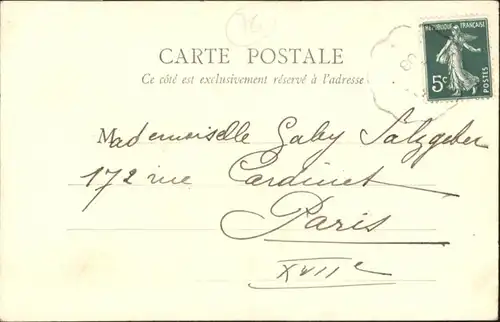 CARTE POSTALE
Ce côté est exclusivement réservé à l'adresse
RÉPUBLIQUE FRANÇAISE
5c
POSTES
Mademoiselle Gaby Salzgeber
172 rue Cardinet
Paris
XVIIe